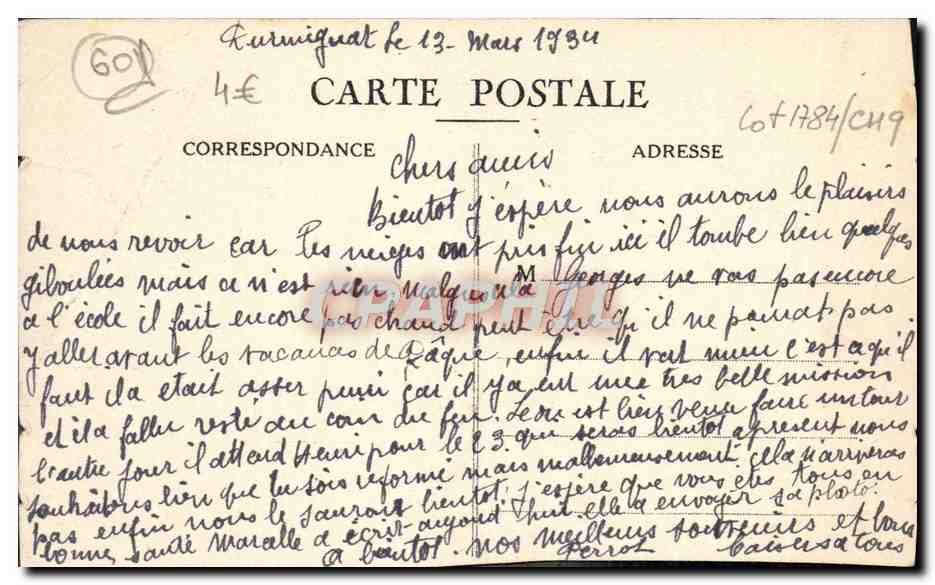 Durmignat le 13 - Mars 1934
601
4€
CARTE POSTALE
Lot 1784/CH9
CORRESPONDANCE
ADRESSE
Chers amis
Bientot j'espère nous aurons le plaisirs
de nous revoir car les neiges ont pris fin ici il tombe bien quelques
giboulées mais ce n'est rien, malgre cela Georges ne vas pas encore
M
CPAPHIL
a l'école il fait encore pas chaud peut être qu'il ne pourrat pas
y aller avant les vacances de Pâque, enfin il vat mieu c'est a qu'il
faut il a était asser puni car il y a eut une tres belle mission
et il a fallu resté au coin du feu. Léon est bien venu faire un tour
l'autre jour il attend Henri pour le 23 qui seras bientot apresent nous
souhaitons bien que tu sois reformé mais malheureusement cela n'arriveras
pas enfin nous le saurons bientot, j'espère que vous etes tous en
bonne santé Marcelle a écrit aujourd'hui elle a envoyer sa photo.
A bientot. nos meilleurs souvenirs et bons
Perrot baisers a tous